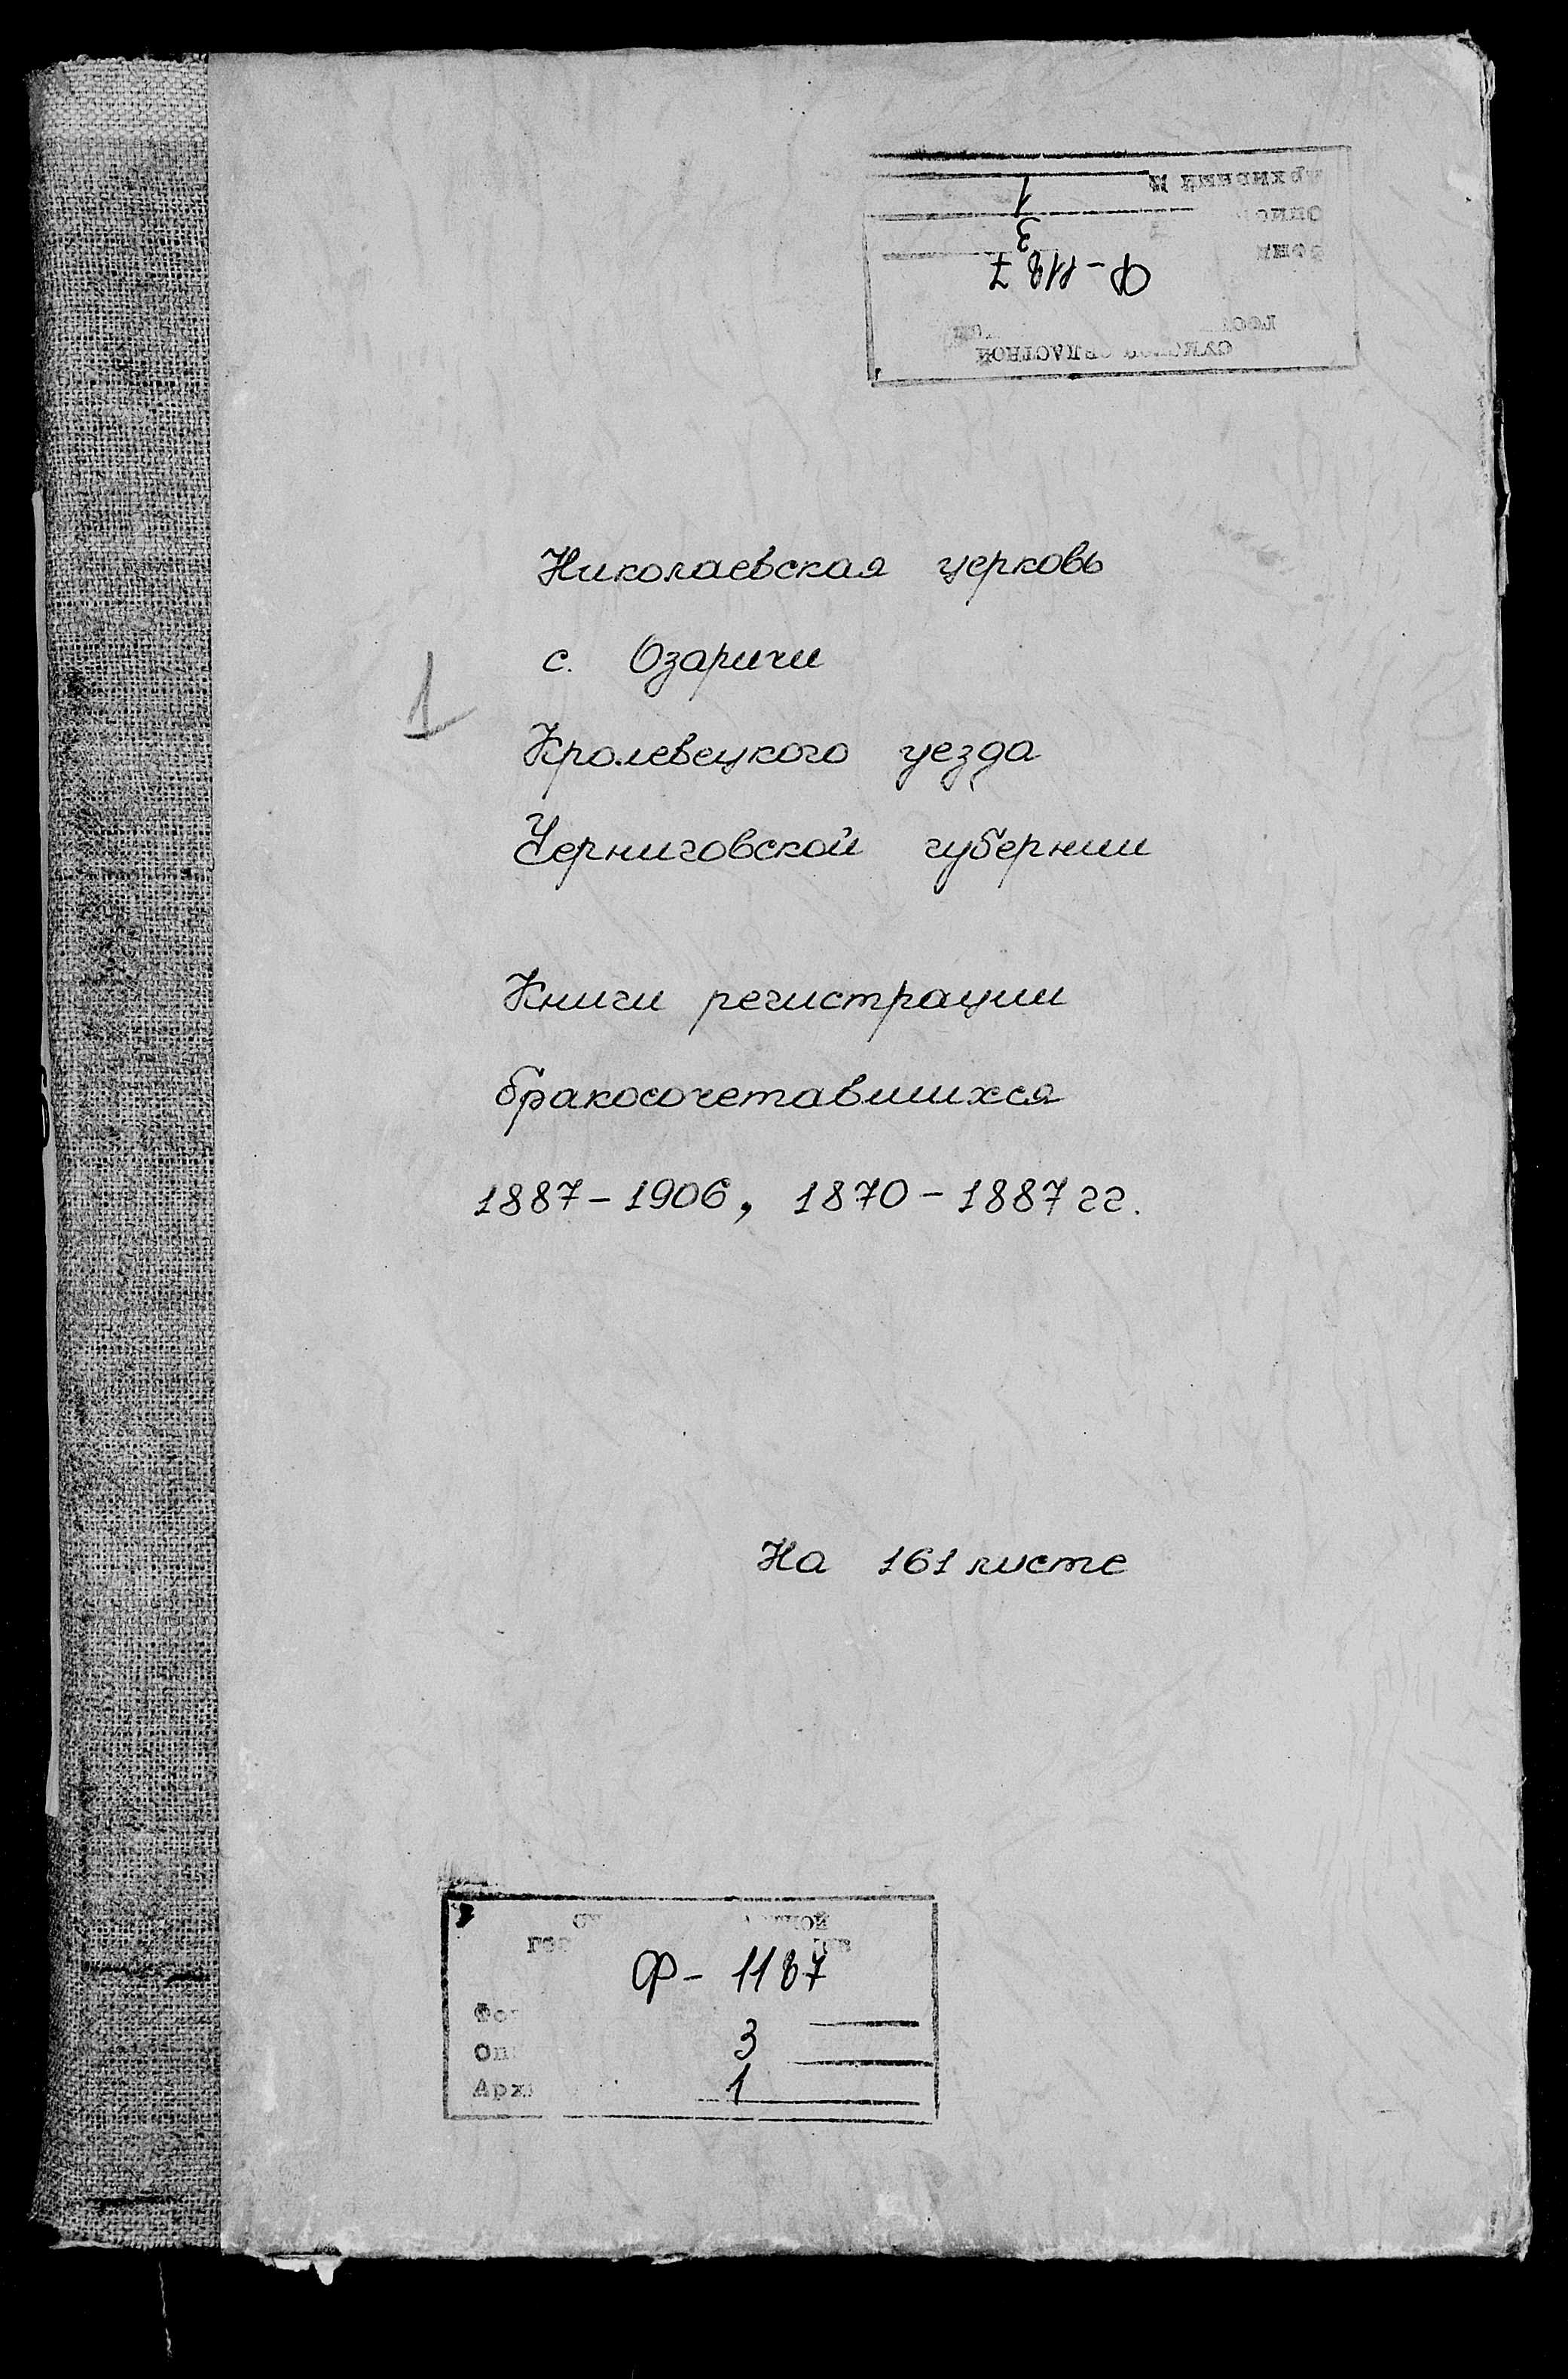 Архивный №
1
3
Ф-1187
Николаевская церковь
с. Озаричи
1
Кролевецкого уезда
Черниговской губернии
Книги регистрации
бракосочетавшихся
1887-1906, 1870-1887 гг.
На 161 листе
Ф- 1187
3
1